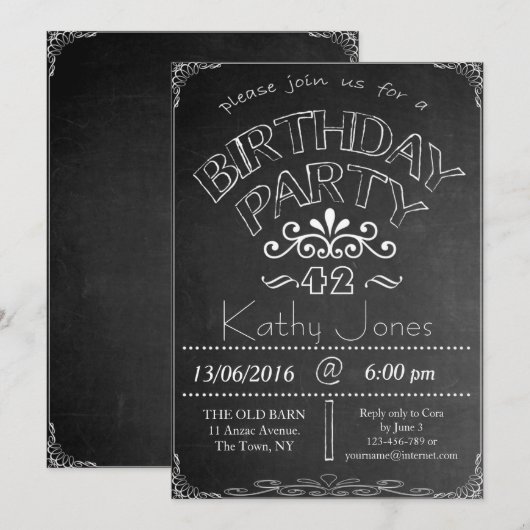 please join us for a
BIRTHDAY
PARTY
~ 42 ~
Kathy Jones
13/06/2016 @ 6:00 pm
THE OLD BARN
11 Anzac Avenue.
The Town, NY
Reply only to Cora
by June 3
123-456-789 or
yourname@internet.com